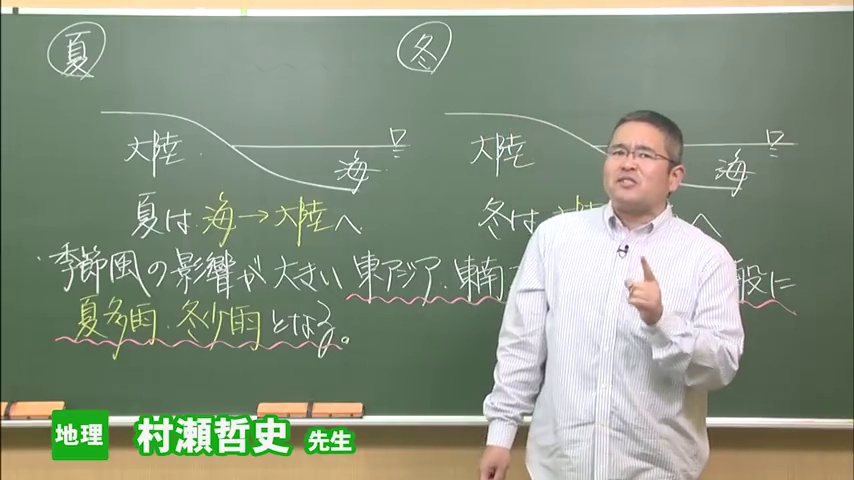 夏
冬
大陸 海
大陸 海
夏は 海→大陸へ
冬は 大陸 へ
・季節風の影響が大きい 東アジア・東南 般に
夏多雨・冬少雨となる。
地理 村瀬哲史 先生